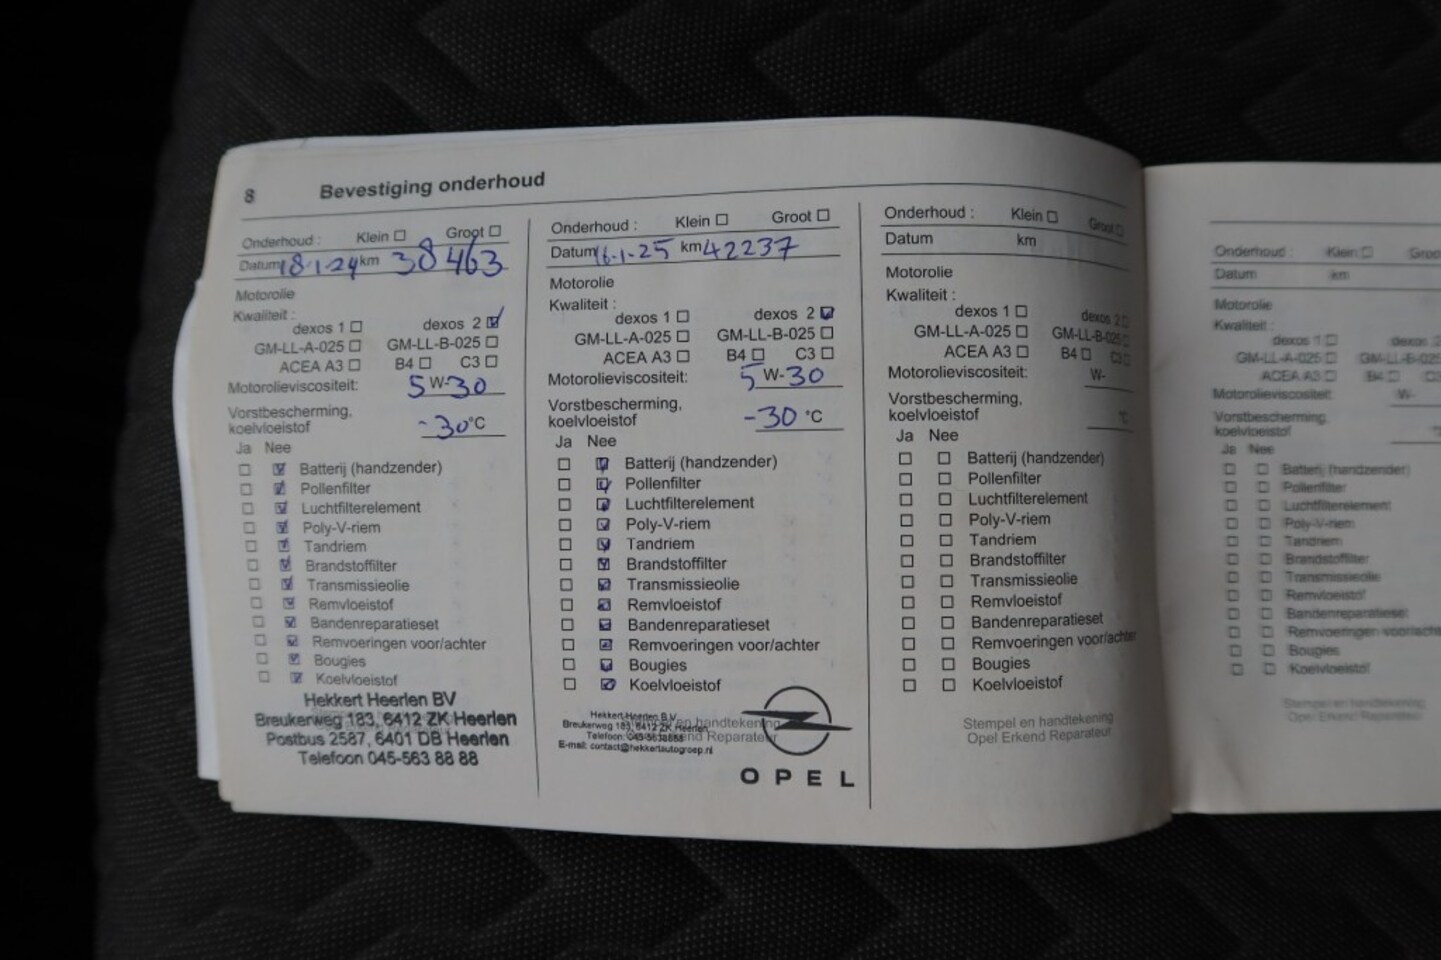 8 Bevestiging onderhoud
Onderhoud : Klein Groot
Datum 18-1-24 km 38463
Motorolie
Kwaliteit :
dexos 1 dexos 2
GM-LL-A-025 GM-LL-B-025
ACEA A3 B4 C3
Motorolieviscositeit: 5 W-30
Vorstbescherming,
koelvloeistof -30 °C
Ja Nee
Batterij (handzender)
Pollenfilter
Luchtfilterelement
Poly-V-riem
Tandriem
Brandstoffilter
Transmissieolie
Remvloeistof
Bandenreparatieset
Remvoeringen voor/achter
Bougies
Koelvloeistof
Hekkert Heerlen BV
Breukerweg 183, 6412 ZK Heerlen
Postbus 2587, 6401 DB Heerlen
Telefoon 045-563 88 88
Onderhoud : Klein Groot
Datum 16-1-25 km 42237
Motorolie
Kwaliteit :
dexos 1 dexos 2
GM-LL-A-025 GM-LL-B-025
ACEA A3 B4 C3
Motorolieviscositeit: 5 W-30
Vorstbescherming,
koelvloeistof -30 °C
Ja Nee
Batterij (handzender)
Pollenfilter
Luchtfilterelement
Poly-V-riem
Tandriem
Brandstoffilter
Transmissieolie
Remvloeistof
Bandenreparatieset
Remvoeringen voor/achter
Bougies
Koelvloeistof
Hekkert Heerlen B.V.
Breukerweg 183, 6412 ZK Heerlen
Telefoon: 045-5638888
E-mail: contact@hekkertautogroep.nl
en handtekening
Erkend Reparateur
OPEL
Onderhoud : Klein Groot
Datum km
Motorolie
Kwaliteit :
dexos 1 dexos 2
GM-LL-A-025 GM-LL-B-025
ACEA A3 B4 C3
Motorolieviscositeit: W-
Vorstbescherming,
koelvloeistof °C
Ja Nee
Batterij (handzender)
Pollenfilter
Luchtfilterelement
Poly-V-riem
Tandriem
Brandstoffilter
Transmissieolie
Remvloeistof
Bandenreparatieset
Remvoeringen voor/achter
Bougies
Koelvloeistof
Stempel en handtekening
Opel Erkend Reparateur
Onderhoud : Klein
Datum km
Motorolie
Kwaliteit :
dexos 1 dexos
GM-LL-A-025
ACEA A3 B4
Motorolieviscositeit: W-
Vorstbescherming,
koelvloeistof
Ja Nee
Batterij (handzender)
Pollenfilter
Luchtfilterelement
Poly-V-riem
Tandriem
Brandstoffilter
Transmissieolie
Remvloeistof
Bandenreparatieset
Remvoeringen
Bougies
Koelvloeistof
Stempel en handtekening
Opel Erkend Reparateur